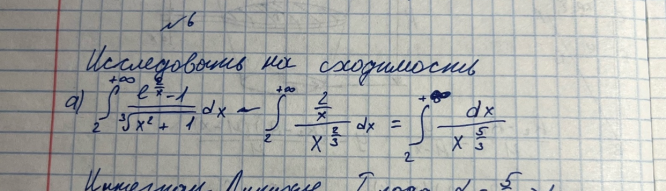 №6
Исследовать на сходимость
а) ∫₂^{+∞} (e^{2/x} - 1)/∛(x² + 1) dx ~ ∫₂^{+∞} (2/x)/(x^{2/3}) dx = ∫₂^{+∞} dx/(x^{5/3})